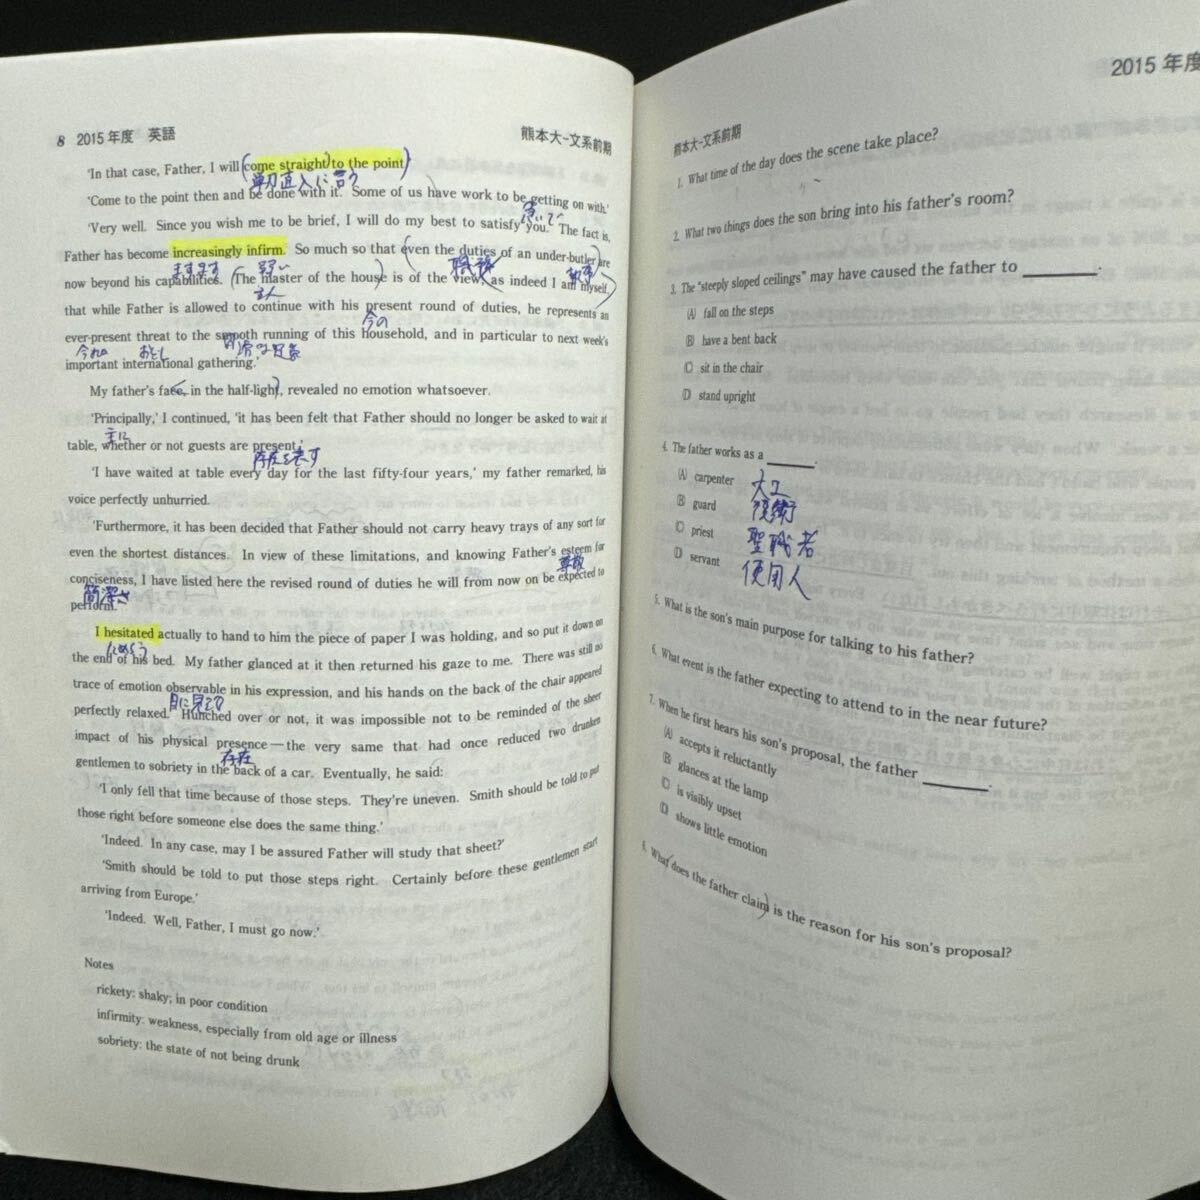 8 2015年度 英語
熊本大-文系前期
'In that case, Father, I will come straight to the point.'
単刀直入に言う
'Come to the point then and be done with it. Some of us have work to be getting on with.'
'Very well. Since you wish me to be brief, I will do my best to satisfy you. The fact is,
Father has become increasingly infirm. So much so that even the duties of an under-butler are
ますます 弱い 職務
now beyond his capabilities. The master of the house is of the view, as indeed I am myself,
主人
that while Father is allowed to continue with his present round of duties, he represents an
今の
ever-present threat to the smooth running of this household, and in particular to next week's
おどし
important international gathering.'
My father's face, in the half-light, revealed no emotion whatsoever.
'Principally,' I continued, 'it has been felt that Father should no longer be asked to wait at
主に
table, whether or not guests are present.'
'I have waited at table every day for the last fifty-four years,' my father remarked, his
voice perfectly unhurried.
'Furthermore, it has been decided that Father should not carry heavy trays of any sort for
even the shortest distances. In view of these limitations, and knowing Father's esteem for
尊敬
conciseness, I have listed here the revised round of duties he will from now on be expected to
簡潔さ
perform.'
I hesitated actually to hand to him the piece of paper I was holding, and so put it down on
ためらう
the end of his bed. My father glanced at it then returned his gaze to me. There was still no
trace of emotion observable in his expression, and his hands on the back of the chair appeared
目に見える
perfectly relaxed. Hunched over or not, it was impossible not to be reminded of the sheer
impact of his physical presence—the very same that had once reduced two drunken
存在
gentlemen to sobriety in the back of a car. Eventually, he said:
'I only fell that time because of those steps. They're uneven. Smith should be told to put
those right before someone else does the same thing.'
'Indeed. In any case, may I be assured Father will study that sheet?'
'Smith should be told to put those steps right. Certainly before these gentlemen start
arriving from Europe.'
'Indeed. Well, Father, I must go now.'
Notes
rickety: shaky; in poor condition
infirmity: weakness, especially from old age or illness
sobriety: the state of not being drunk
2015年度
熊本大-文系前期
1. What time of the day does the scene take place?
2. What two things does the son bring into his father's room?
3. The "steeply sloped ceilings" may have caused the father to ______.
(A) fall on the steps
(B) have a bent back
(C) sit in the chair
(D) stand upright
4. The father works as a ______.
(A) carpenter 大工
(B) guard 護衛
(C) priest 聖職者
(D) servant 使用人
5. What is the son's main purpose for talking to his father?
6. What event is the father expecting to attend to in the near future?
7. When he first hears his son's proposal, the father ______.
(A) accepts it reluctantly
(B) glances at the lamp
(C) is visibly upset
(D) shows little emotion
8. What does the father claim is the reason for his son's proposal?